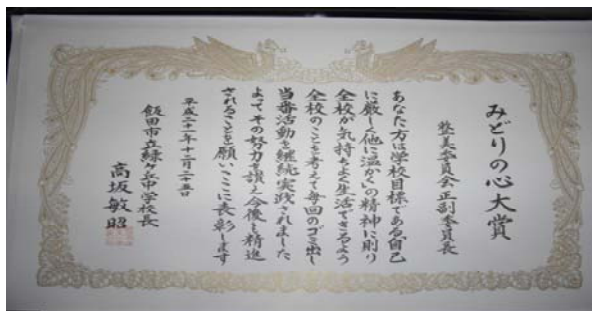 みどりの心大賞
整美委員会正副委員長
あなた方は学校目標である「自己
に厳しく他に温かく」の精神に則り
全校が気持ちよく生活できるよう
全校のことを考えて毎回のゴミ出し
当番活動を継続実践されました
よってその努力を讃え今後も精進
されることを願いここに表彰します
平成二十一年十二月二十五日
飯田市立緑ヶ丘中学校長
高坂敏昭